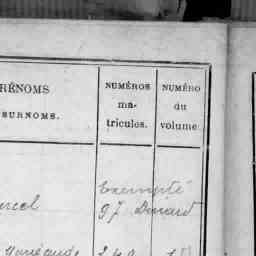 RÉNOMS
SURNOMS.
NUMÉROS
ma-
tricules.
NUMÉRO
du
volume
Exempté
rcel 97 Dinard